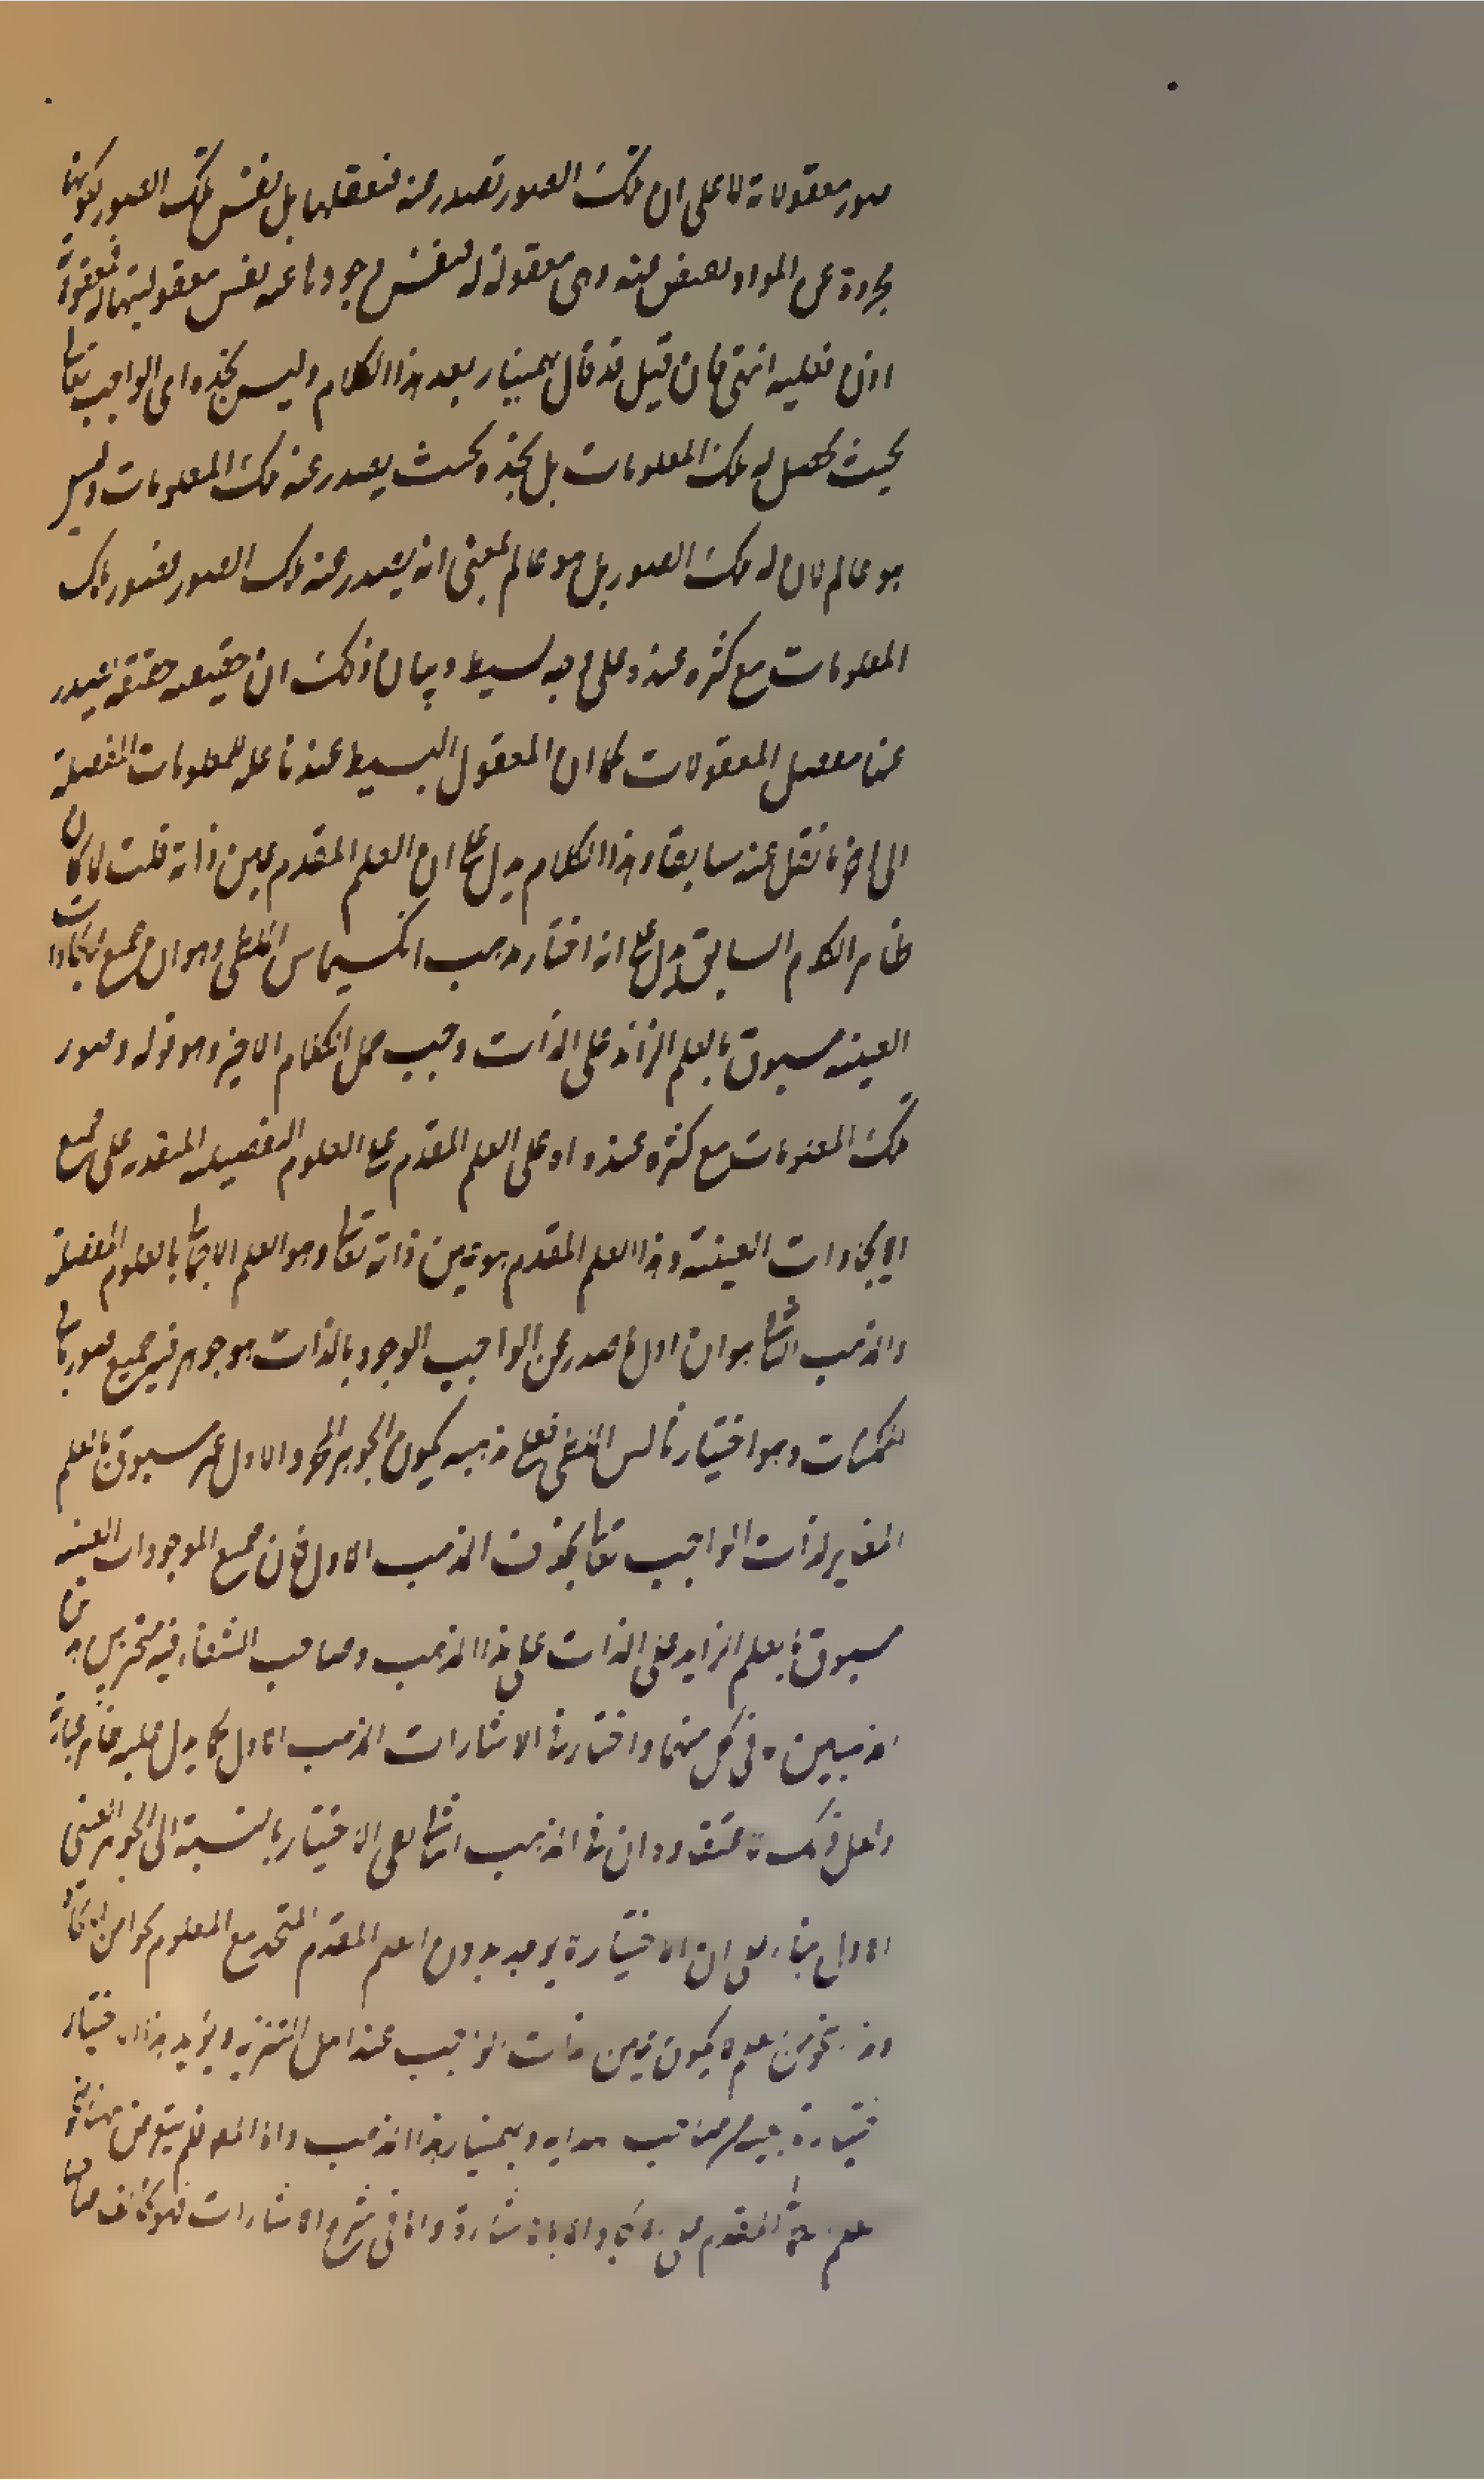 صور معقولاته لا على ان تلك الصور تصدر عنه فيعقلها بل نفس تلك الصور لكونها
مجردة عن المواد تفيض عنه وهى معقولة له فنفس وجودها عنه نفس معقوليتها له فمعقولاته
اذن فعلية انتهى فان قيل قد قال بهمنيار بعد هذا الكلام وليس يجده اى الواجب تعالى
بحيث يحصل له تلك المعلومات بل يجده بحيث يصدر عنه تلك المعلومات وليس
هو عالم لان له تلك الصور بل هو عالم بمعنى انه يصدر عنه تلك الصور فصور تلك
المعلومات مع كثرته عنده على وجه بسيط وبيان ذلك ان حقيقته حقيقة يصدر
عنها مفصل المعقولات كما ان المعقول البسيط عندنا علة للمعلومات المفصلة
الى اخر ما نقل عنه سابقا وهذا الكلام يدل على ان العلم المقدم عين ذاته قلت لما كان
ظاهر الكلام السابق يدل على انه اختار مذهب انكسيماس الملطى وهو ان جميع الايجادات
العينية مسبوق بالعلم الزائد على الذات وجب حمل الكلام الاخير وهو قوله وصور
تلك المعلومات مع كثرته عنده اه على العلم المقدم على العلوم التفصيلية المتقدمة على جميع
الايجادات العينية وهذا العلم المقدم هو عين ذاته تعالى وهو العلم الاجمالى بالعلوم المفصلة
والمذهب الثانى هو ان اول ما صدر عن الواجب الوجود بالذات هو جوهر فيه جميع صور
الممكنات وهو اختيار ثالس الملطى فعلى مذهبه يكون الجوهر المجرد الاول غير مسبوق بالعلم
المغاير لذات الواجب تعالى بخلاف المذهب الاول فان جميع الموجودات العينية
مسبوق بالعلم الزايد على الذات على هذا المذهب وصاحب الشفاء فيه متحير بين
المذهبين فى كل منهما واختار فى الاشارات المذهب الاول كما يدل عليه ظاهر عبارته
ولعل ذلك لاعتقاده ان فى المذهب الثانى نفى الاختيار بالنسبة الى الجوهر العينى
الاول بناء على ان الاختيار لا يوجد بدون العلم المقدم المتحد مع المعلوم نحوا من الاتحاد
نحو من علم لا يكون عين ذات الواجب عند اهل التنزيه ويؤيد هذا
وبهمنيار هذا المذهب
المقدم على شرح الاشارات فهو